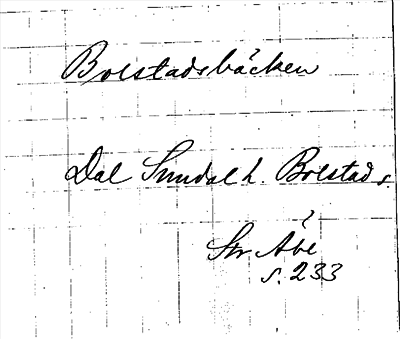 Bolstadsbäcken
Dal Sundal h. Bolstad s.
Sv Åbe
s. 233